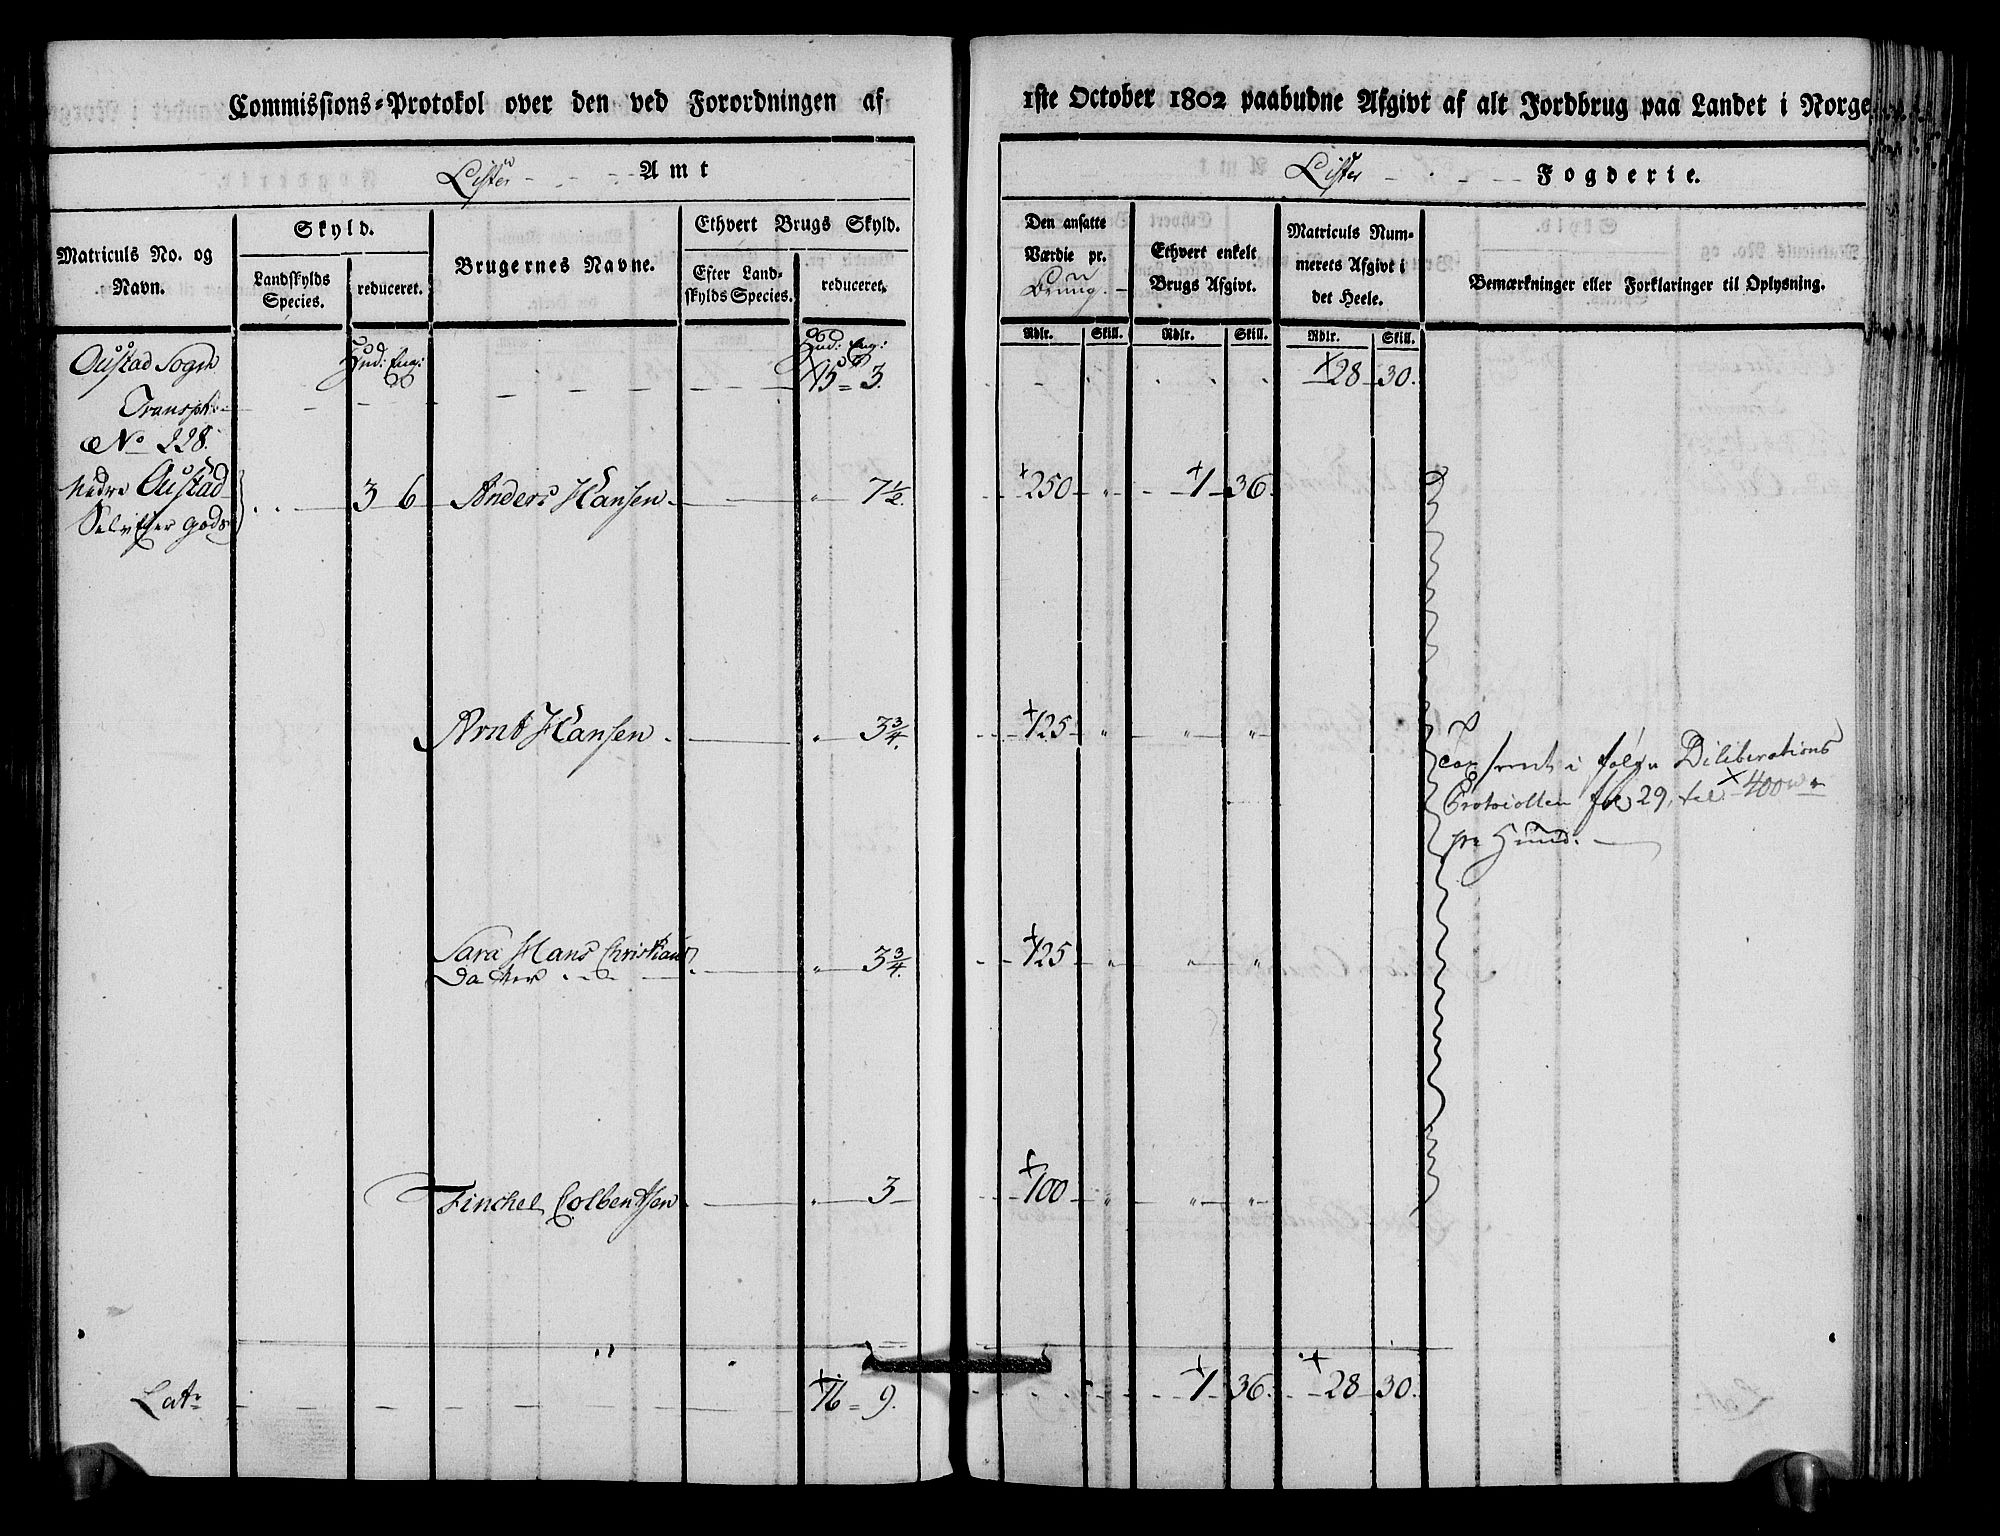 Commissions-Protokol over den ved Forordningen af 1ste October 1802 paabudne Afgivt af alt Jordbrug paa Landet i Norge
Lister - - - Amt
Lister - - - Fogderie.
Matriculs No. og Navn.
Skyld.
Landskylds Species.
reduceret.
Brugernes Navne.
Ethvert Brugs Skyld.
Efter Landskylds Species.
reduceret.
Den ansatte Værdie pr. Brug.
Ethvert enkelt Brugs Afgivt.
Matriculs Nummerets Afgivt i det Heele.
Bemærkninger eller Forklaringer til Oplysning.
Rdlr. Skill. Rdlr. Skill. Rdlr. Skill.
Oustad Sogn Hud: Eng: Hud: Eng:
Transpt - - - 15 = 3. 28 - 30.
No 228.
Nedre Oustad
Selv Eier Gods 3 6 Anders Hansen - „ 7 1/2. 250 - „ - 1 - 36.
Arnt Hansen - „ 3 3/4. 125 „ „ „
i følge Deliberations
Protocollen fol 29, til 400
pr Huud.
Sara Hans Christians
Datter - - „ 3 3/4. 125 „ „ „
Finchel Colbentsen - „ 3 - 100 „ „ „
Latr - - - 16 = 9. - - 1 - 36. - 28 - 30.